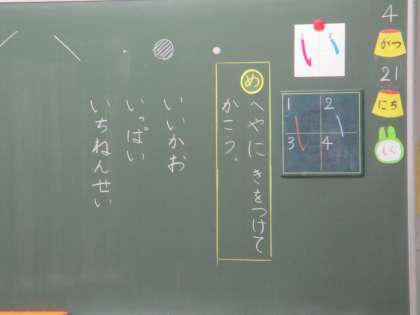 4
がつ
21
にち
1 2
1 2
3 4
め
へやに きをつけて
かこう。
いいかお
いっぱい
いちねんせい